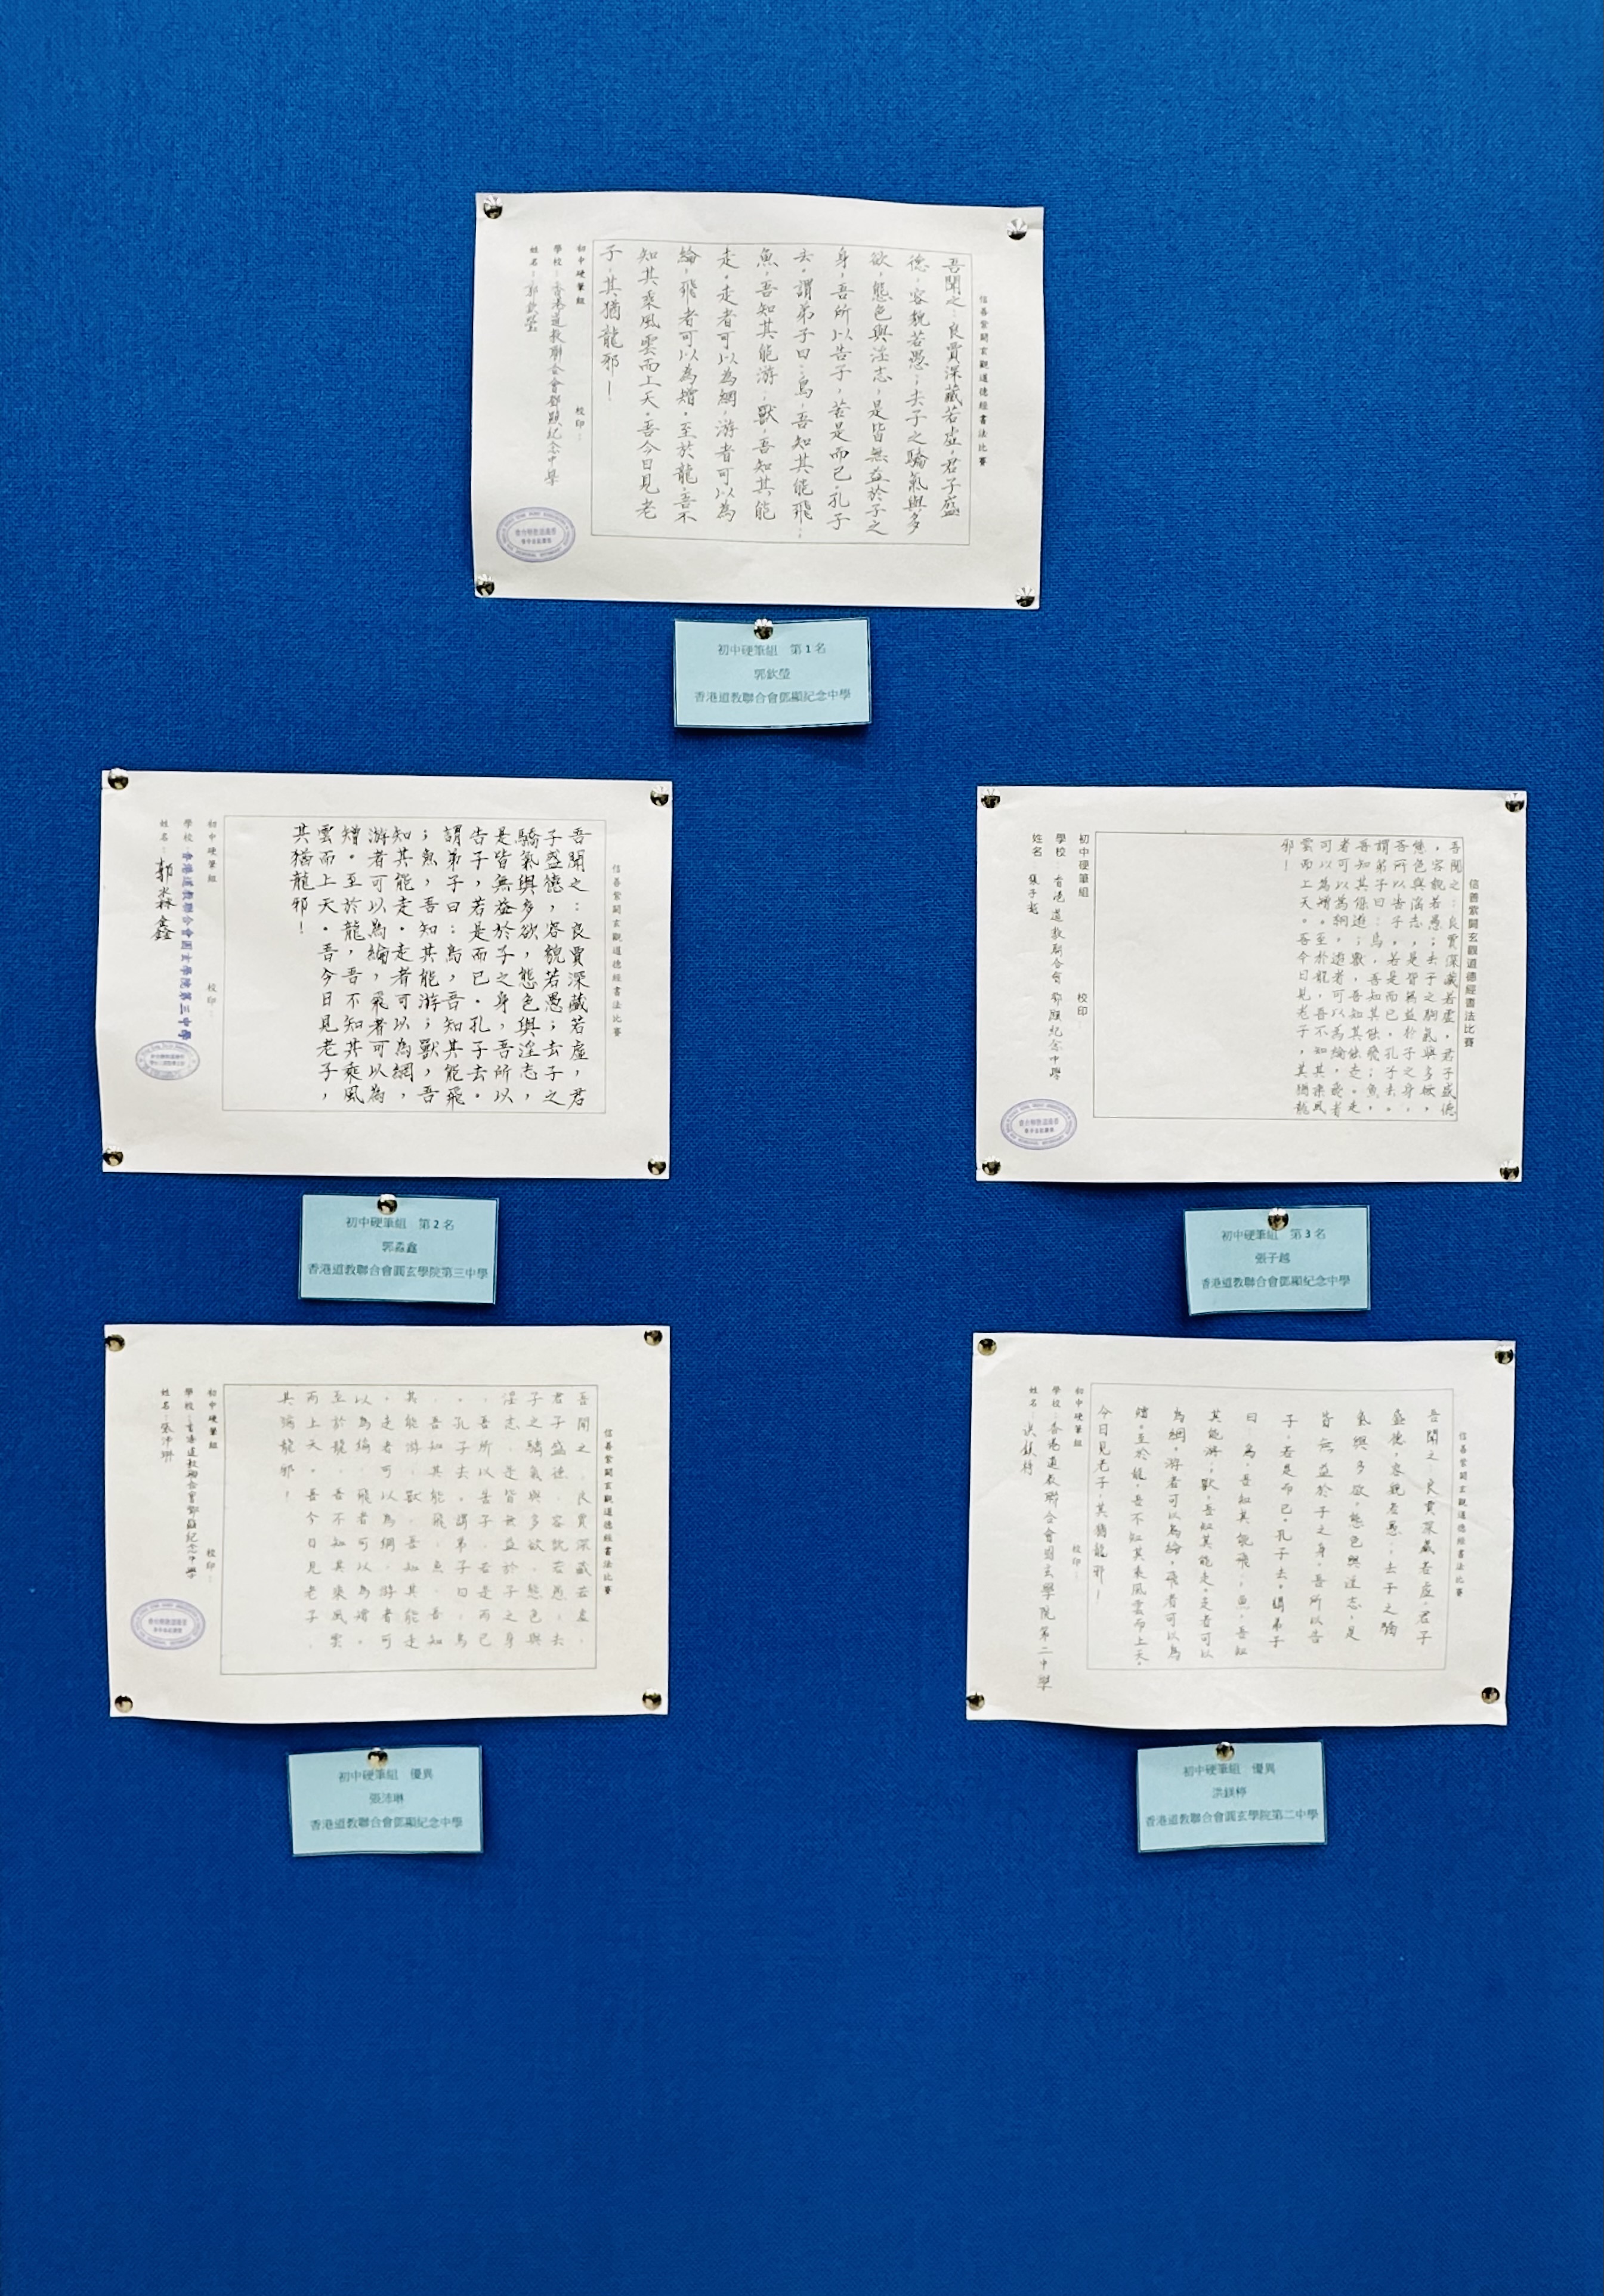 信善紫闕玄觀道德經書法比賽
吾聞之：良賈深藏若虛，君子盛
德，容貌若愚；去子之驕氣與多
欲，態色與淫志，是皆無益於子之
身，吾所以告子，若是而已。孔子
去，謂弟子曰：鳥，吾知其能飛；
魚，吾知其能游；獸，吾知其能
走。走者可以為網，游者可以為
綸，飛者可以為矰。至於龍，吾不
知其乘風雲而上天。吾今日見老
子，其猶龍邪！
初中硬筆組 校印：
學校：香港道教聯合會鄧顯紀念中學
姓名：郭欽瑩
初中硬筆組 第1名
郭欽瑩
香港道教聯合會鄧顯紀念中學
信善紫闕玄觀道德經書法比賽
吾聞之：良賈深藏若虛，君
子盛德，容貌若愚；去子之
驕氣與多欲，態色與淫志，
是皆無益於子之身，吾所以
告子，若是而已。孔子去。
謂弟子曰：鳥，吾知其能飛
；魚，吾知其能游；獸，吾
知其能走。走者可以為網，
游者可以為綸，飛者可以為
矰。至於龍，吾不知其乘風
雲而上天。吾今日見老子，
其猶龍邪！
初中硬筆組 校印：
學校：香港道教聯合會圓玄學院第三中學
姓名：郭淼鑫
初中硬筆組 第2名
郭淼鑫
香港道教聯合會圓玄學院第三中學
信善紫闕玄觀道德經書法比賽
吾聞之：良賈深藏若虛，君子盛德
，容貌若愚；去子之驕氣與多欲，
態色與淫志，是皆無益於子之身，
吾所以告子，若是而已。孔子去。
謂弟子曰：鳥，吾知其能飛；魚，
吾知其能遊；獸，吾知其能走。走
者可以為網，遊者可以為綸，飛者
可以為矰。至於龍，吾不知其乘風
雲而上天。吾今日見老子，其猶龍
邪！
初中硬筆組 校印：
學校：香港道教聯合會鄧顯紀念中學
姓名：張子越
初中硬筆組 第3名
張子越
香港道教聯合會鄧顯紀念中學
信善紫闕玄觀道德經書法比賽
吾聞之：良賈深藏若虛，
君子盛德，容貌若愚；去
子之驕氣與多欲，態色與
淫志，是皆無益於子之身
，吾所以告子，若是而已
。孔子去。謂弟子曰：鳥
，吾知其能飛；魚，吾知
其能游；獸，吾知其能走
。走者可以為網，游者可
以為綸，飛者可以為矰。
至於龍，吾不知其乘風雲
而上天。吾今日見老子，
其猶龍邪！
初中硬筆組 校印：
學校：香港道教聯合會鄧顯紀念中學
姓名：張沛琳
初中硬筆組 優異
張沛琳
香港道教聯合會鄧顯紀念中學
信善紫闕玄觀道德經書法比賽
吾聞之：良賈深藏若虛，君子
盛德，容貌若愚；去子之驕
氣與多欲，態色與淫志，是
皆無益於子之身，吾所以告
子，若是而已。孔子去。謂弟子
曰：鳥，吾知其能飛；魚，吾知
其能游；獸，吾知其能走。走者可以
為網，游者可以為綸，飛者可以為
矰。至於龍，吾不知其乘風雲而上天。
今日見老子，其猶龍邪！
初中硬筆組 校印：
學校：香港道教聯合會圓玄學院第二中學
姓名：洪鎂婷
初中硬筆組 優異
洪鎂婷
香港道教聯合會圓玄學院第二中學